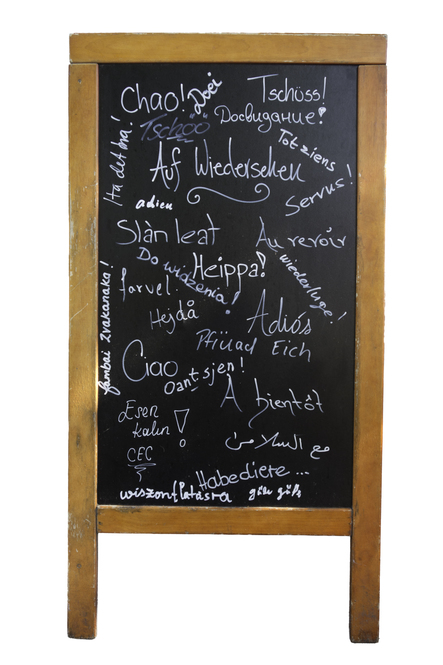 Chao!
Doei
Tschüss!
Tschöö
Досвидание!
Ha det bra!
Tot ziens
Auf Wiedersehen
Servus!
adieu
Slàn leat
Au revoir
Do widzenia!
Heippa!
wiederluege!
farvel
Hejdå
Adiós
Pfiiuad Eich
fambai zvakanaka!
Ciao
oant sjen!
À bientôt
Esen
kalın!
مع السلامة
CEC
Habediere ...
wiszontlatasra
güle güle